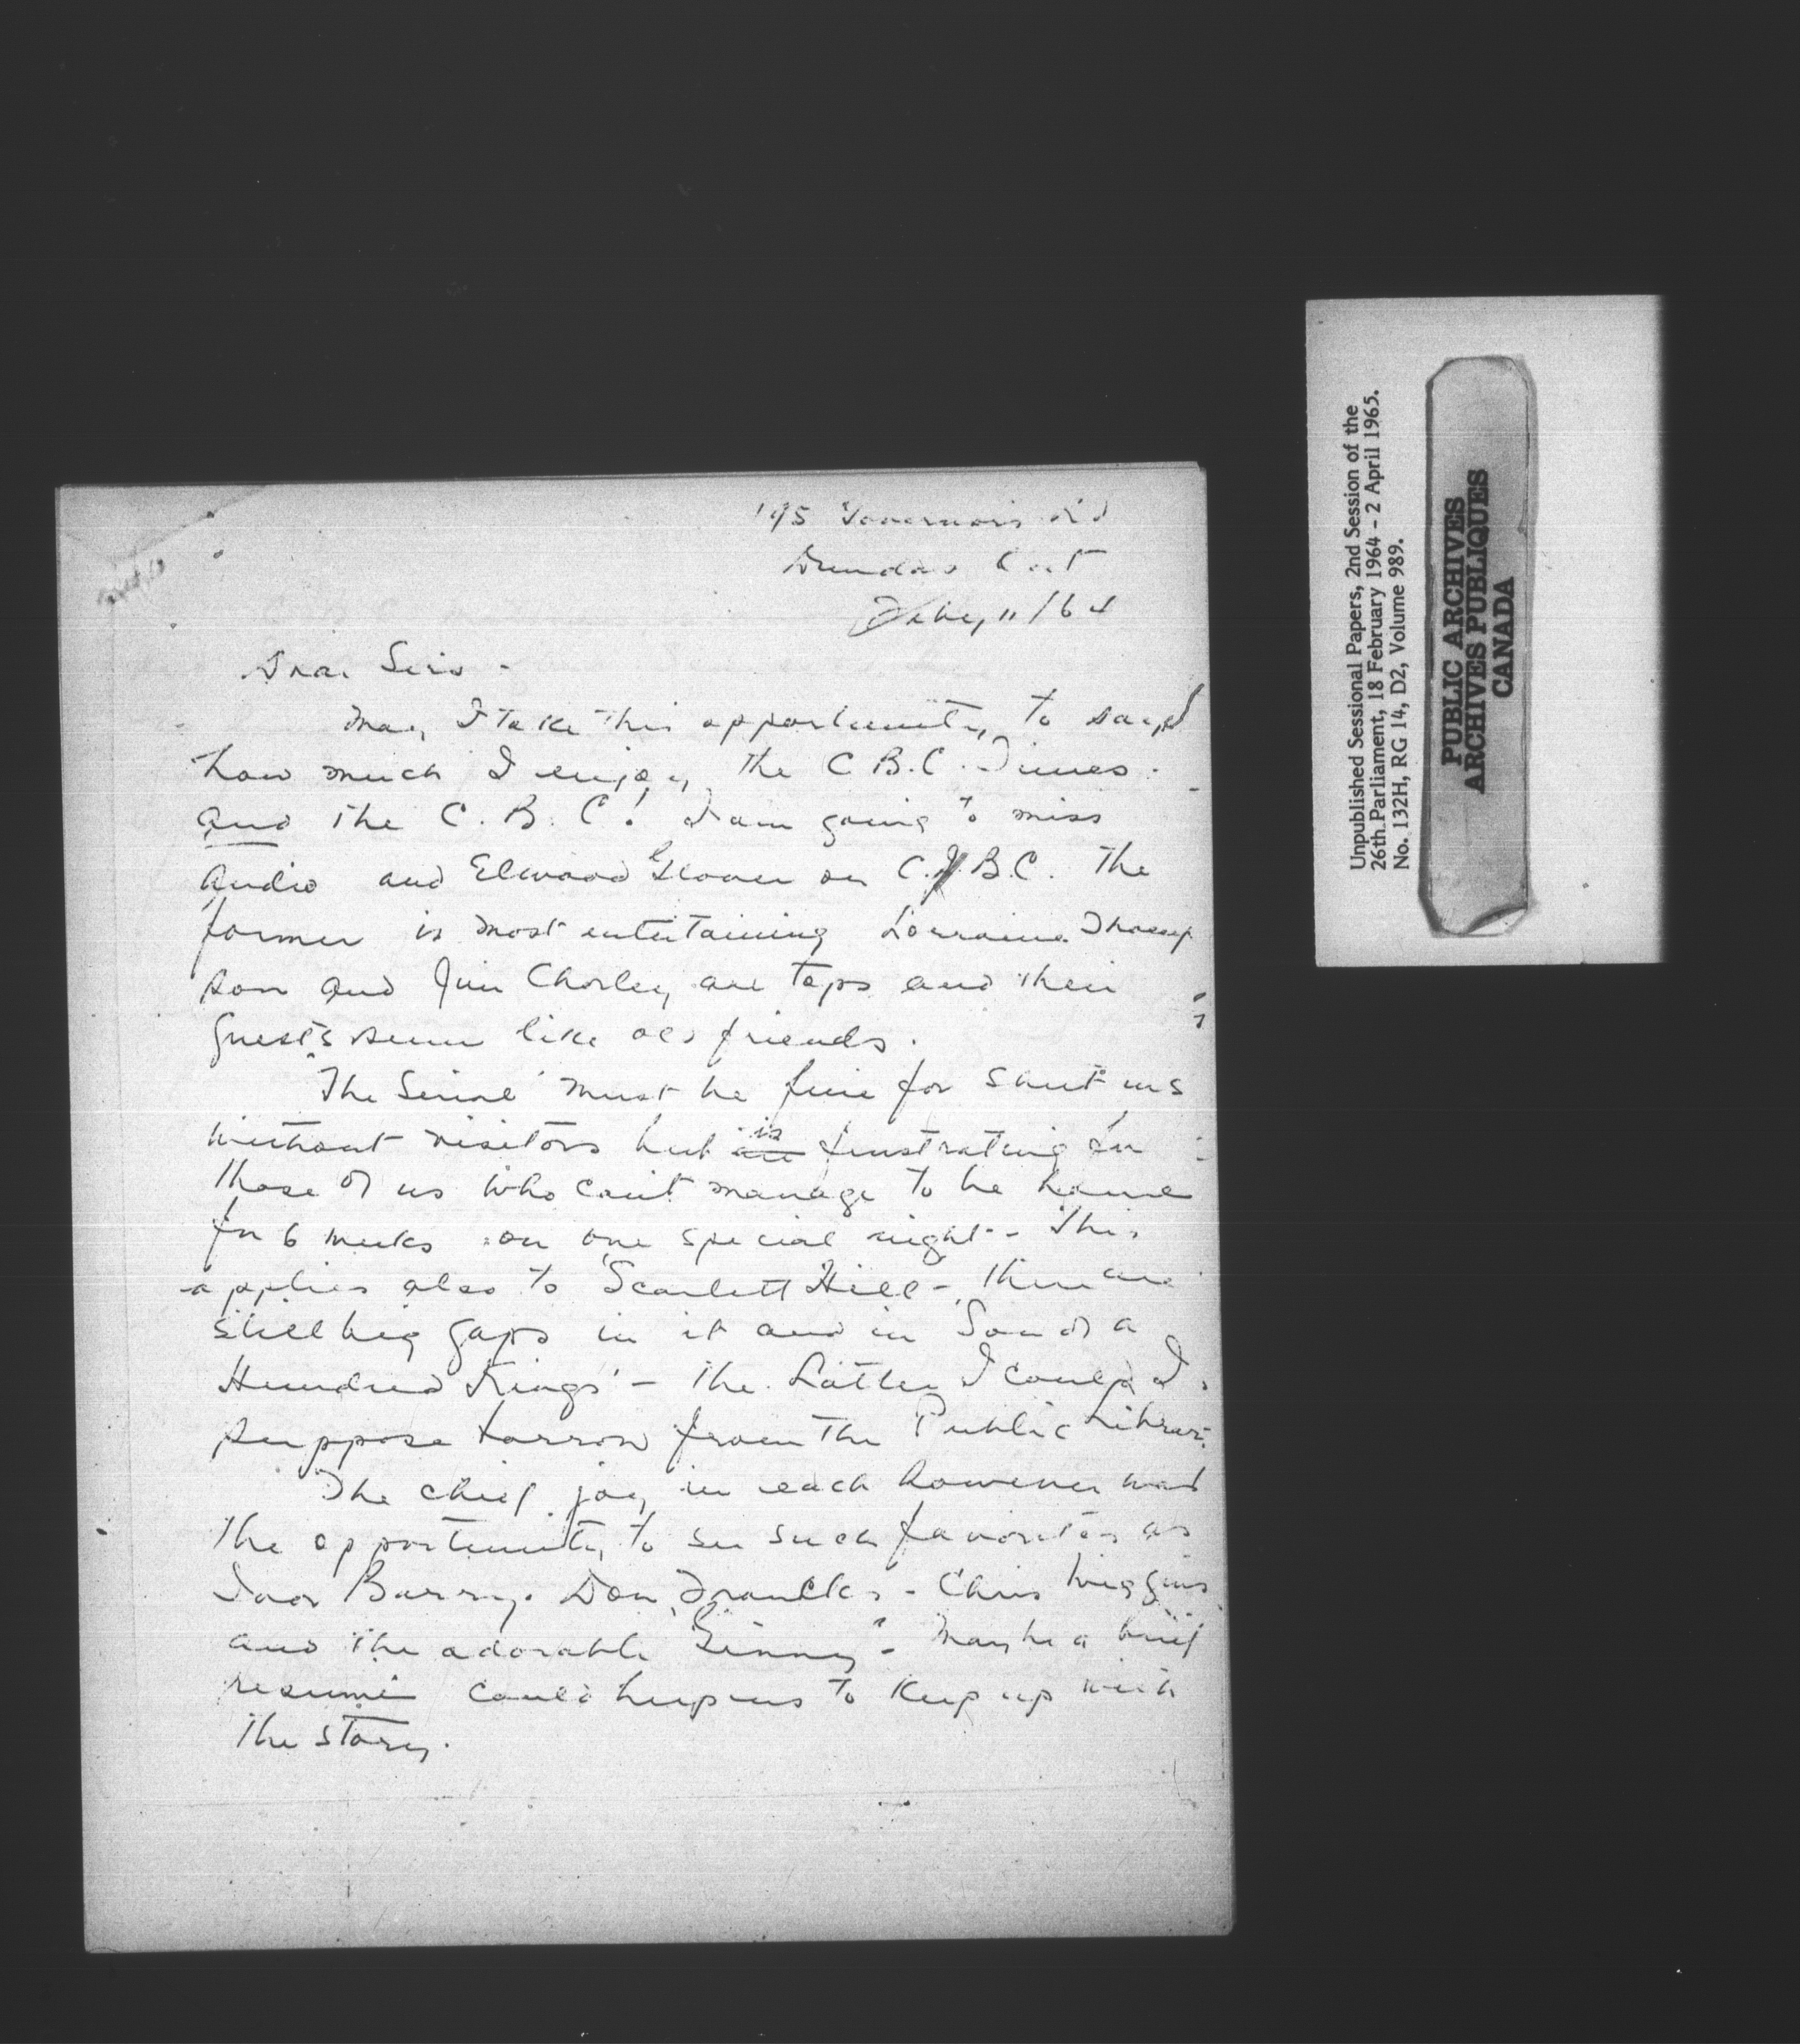 195 Governors Rd
Dundas Ont
Feby 11/64
Dear Sirs -
May I take this opportunity to say
how much I enjoy the C.B.C. Times.
and the C.B.C! I am going to miss
Audio and Elwood Glover on C.J.B.C. The
former is most entertaining Lorraine Thomp
son and Jim Chorley are tops and their
guests seem like old friends.
"The Serial" must be fine for shut ins
without visitors but are is frustrating for
those of us who can't manage to be home
for 6 weeks on one special night - This
applies also to Scarlett Hill - there are
still big gaps in it and in Son of a
Hundred Kings' - The Latter I could I
suppose borrow from the Public Library.
The chief joy in each however was
the opportunity to see such favorites as
Ivor Barry. Don Francks - Chris Wiggins
and the adorable "Ginny" - Maybe a brief
resumé could help us to keep up with
the story.
Unpublished Sessional Papers, 2nd Session of the
26th Parliament, 18 February 1964 - 2 April 1965.
No. 132H, RG 14, D2, Volume 989.
PUBLIC ARCHIVES
ARCHIVES PUBLIQUES
CANADA